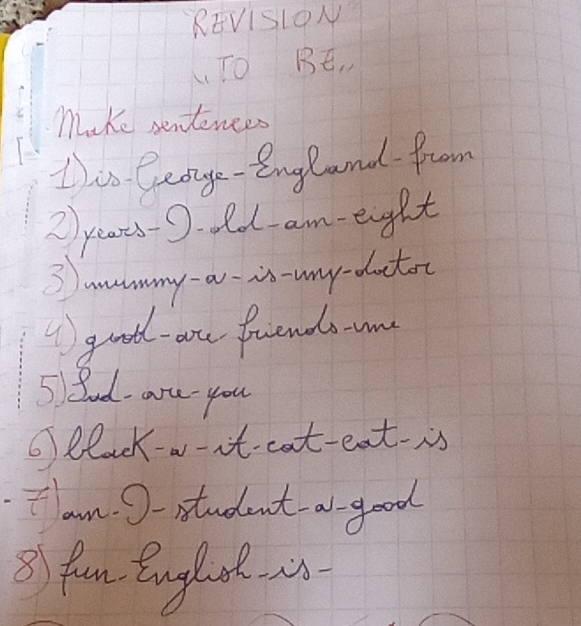 REVISION
"TO BE"
Make sentences
1) is-George-England-from
2) years-I-old-am-eight
3) mummy-a-is-my-doctor
4) good-are-friends-me
5) Sad-are-you
6) black-a-it-cat-cat-is
7) am-I-student-a-good
8) fun-English-is-